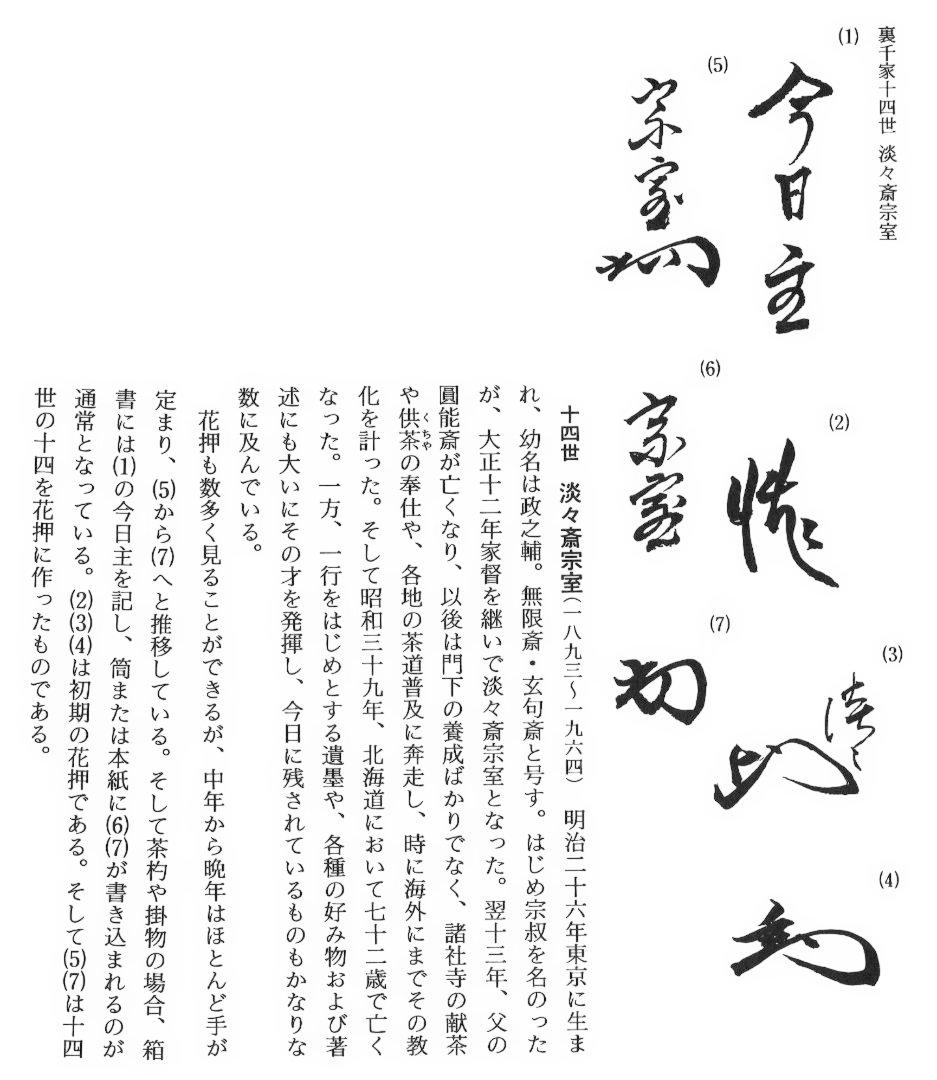 裏千家十四世 淡々斎宗室
(1)
今日主
(5)
宗室
(2)
(6)
宗室
(3)
淡々
(7)
(4)
十四世 淡々斎宗室(一八九三〜一九六四) 明治二十六年東京に生ま
れ、幼名は政之輔。無限斎・玄句斎と号す。はじめ宗叔を名のった
が、大正十二年家督を継いで淡々斎宗室となった。翌十三年、父の
圓能斎が亡くなり、以後は門下の養成ばかりでなく、諸社寺の献茶
や供茶くちゃの奉仕や、各地の茶道普及に奔走し、時に海外にまでその教
化を計った。そして昭和三十九年、北海道において七十二歳で亡く
なった。一方、一行をはじめとする遺墨や、各種の好み物および著
述にも大いにその才を発揮し、今日に残されているものもかなりな
数に及んでいる。
花押も数多く見ることができるが、中年から晩年はほとんど手が
定まり、(5)から(7)へと推移している。そして茶杓や掛物の場合、箱
書には(1)の今日主を記し、筒または本紙に(6)(7)が書き込まれるのが
通常となっている。(2)(3)(4)は初期の花押である。そして(5)(7)は十四
世の十四を花押に作ったものである。